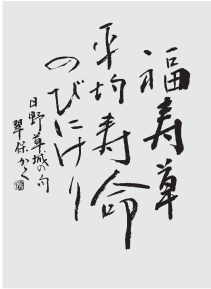 福寿草
平均寿命
のびにけり
日野草城の句
翠保かく